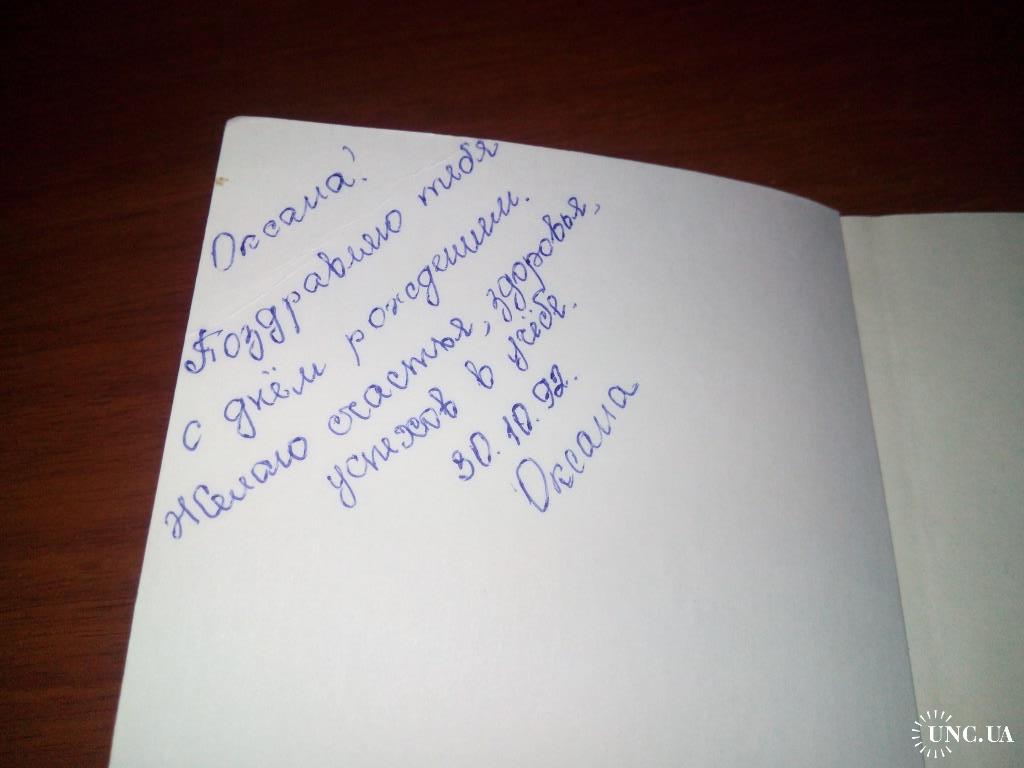 Оксана!
Поздравляю тебя
с днём рождения.
Желаю счастья, здоровья,
успехов в учёбе.
30.10.92.
Оксана
UNC.UA